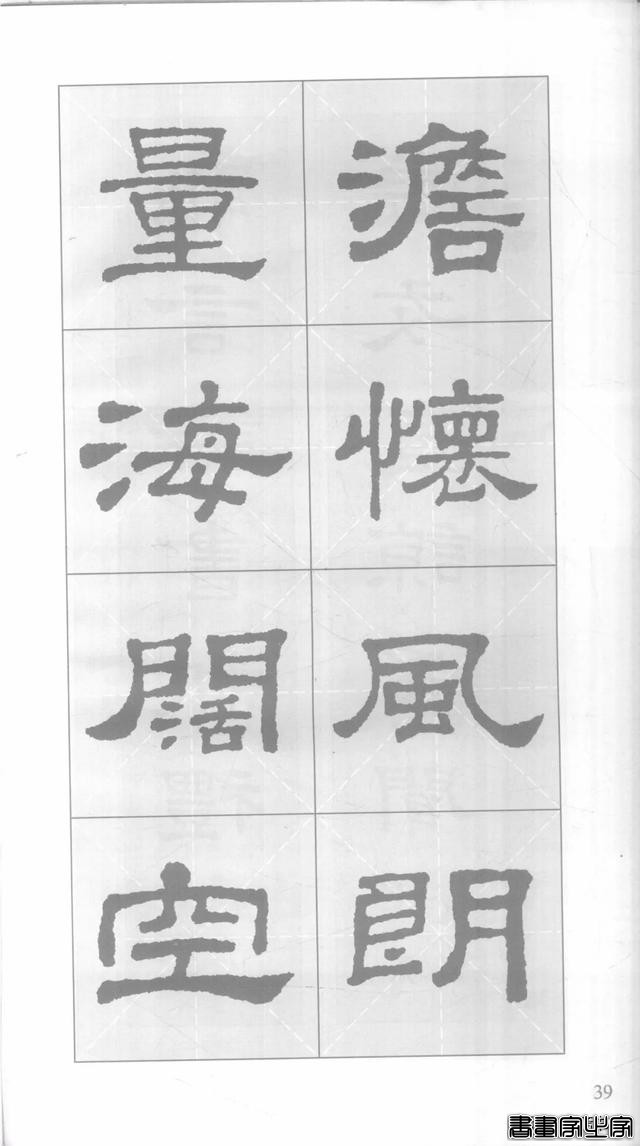 澹懷風朗
量海闊空
39
書畫家必字